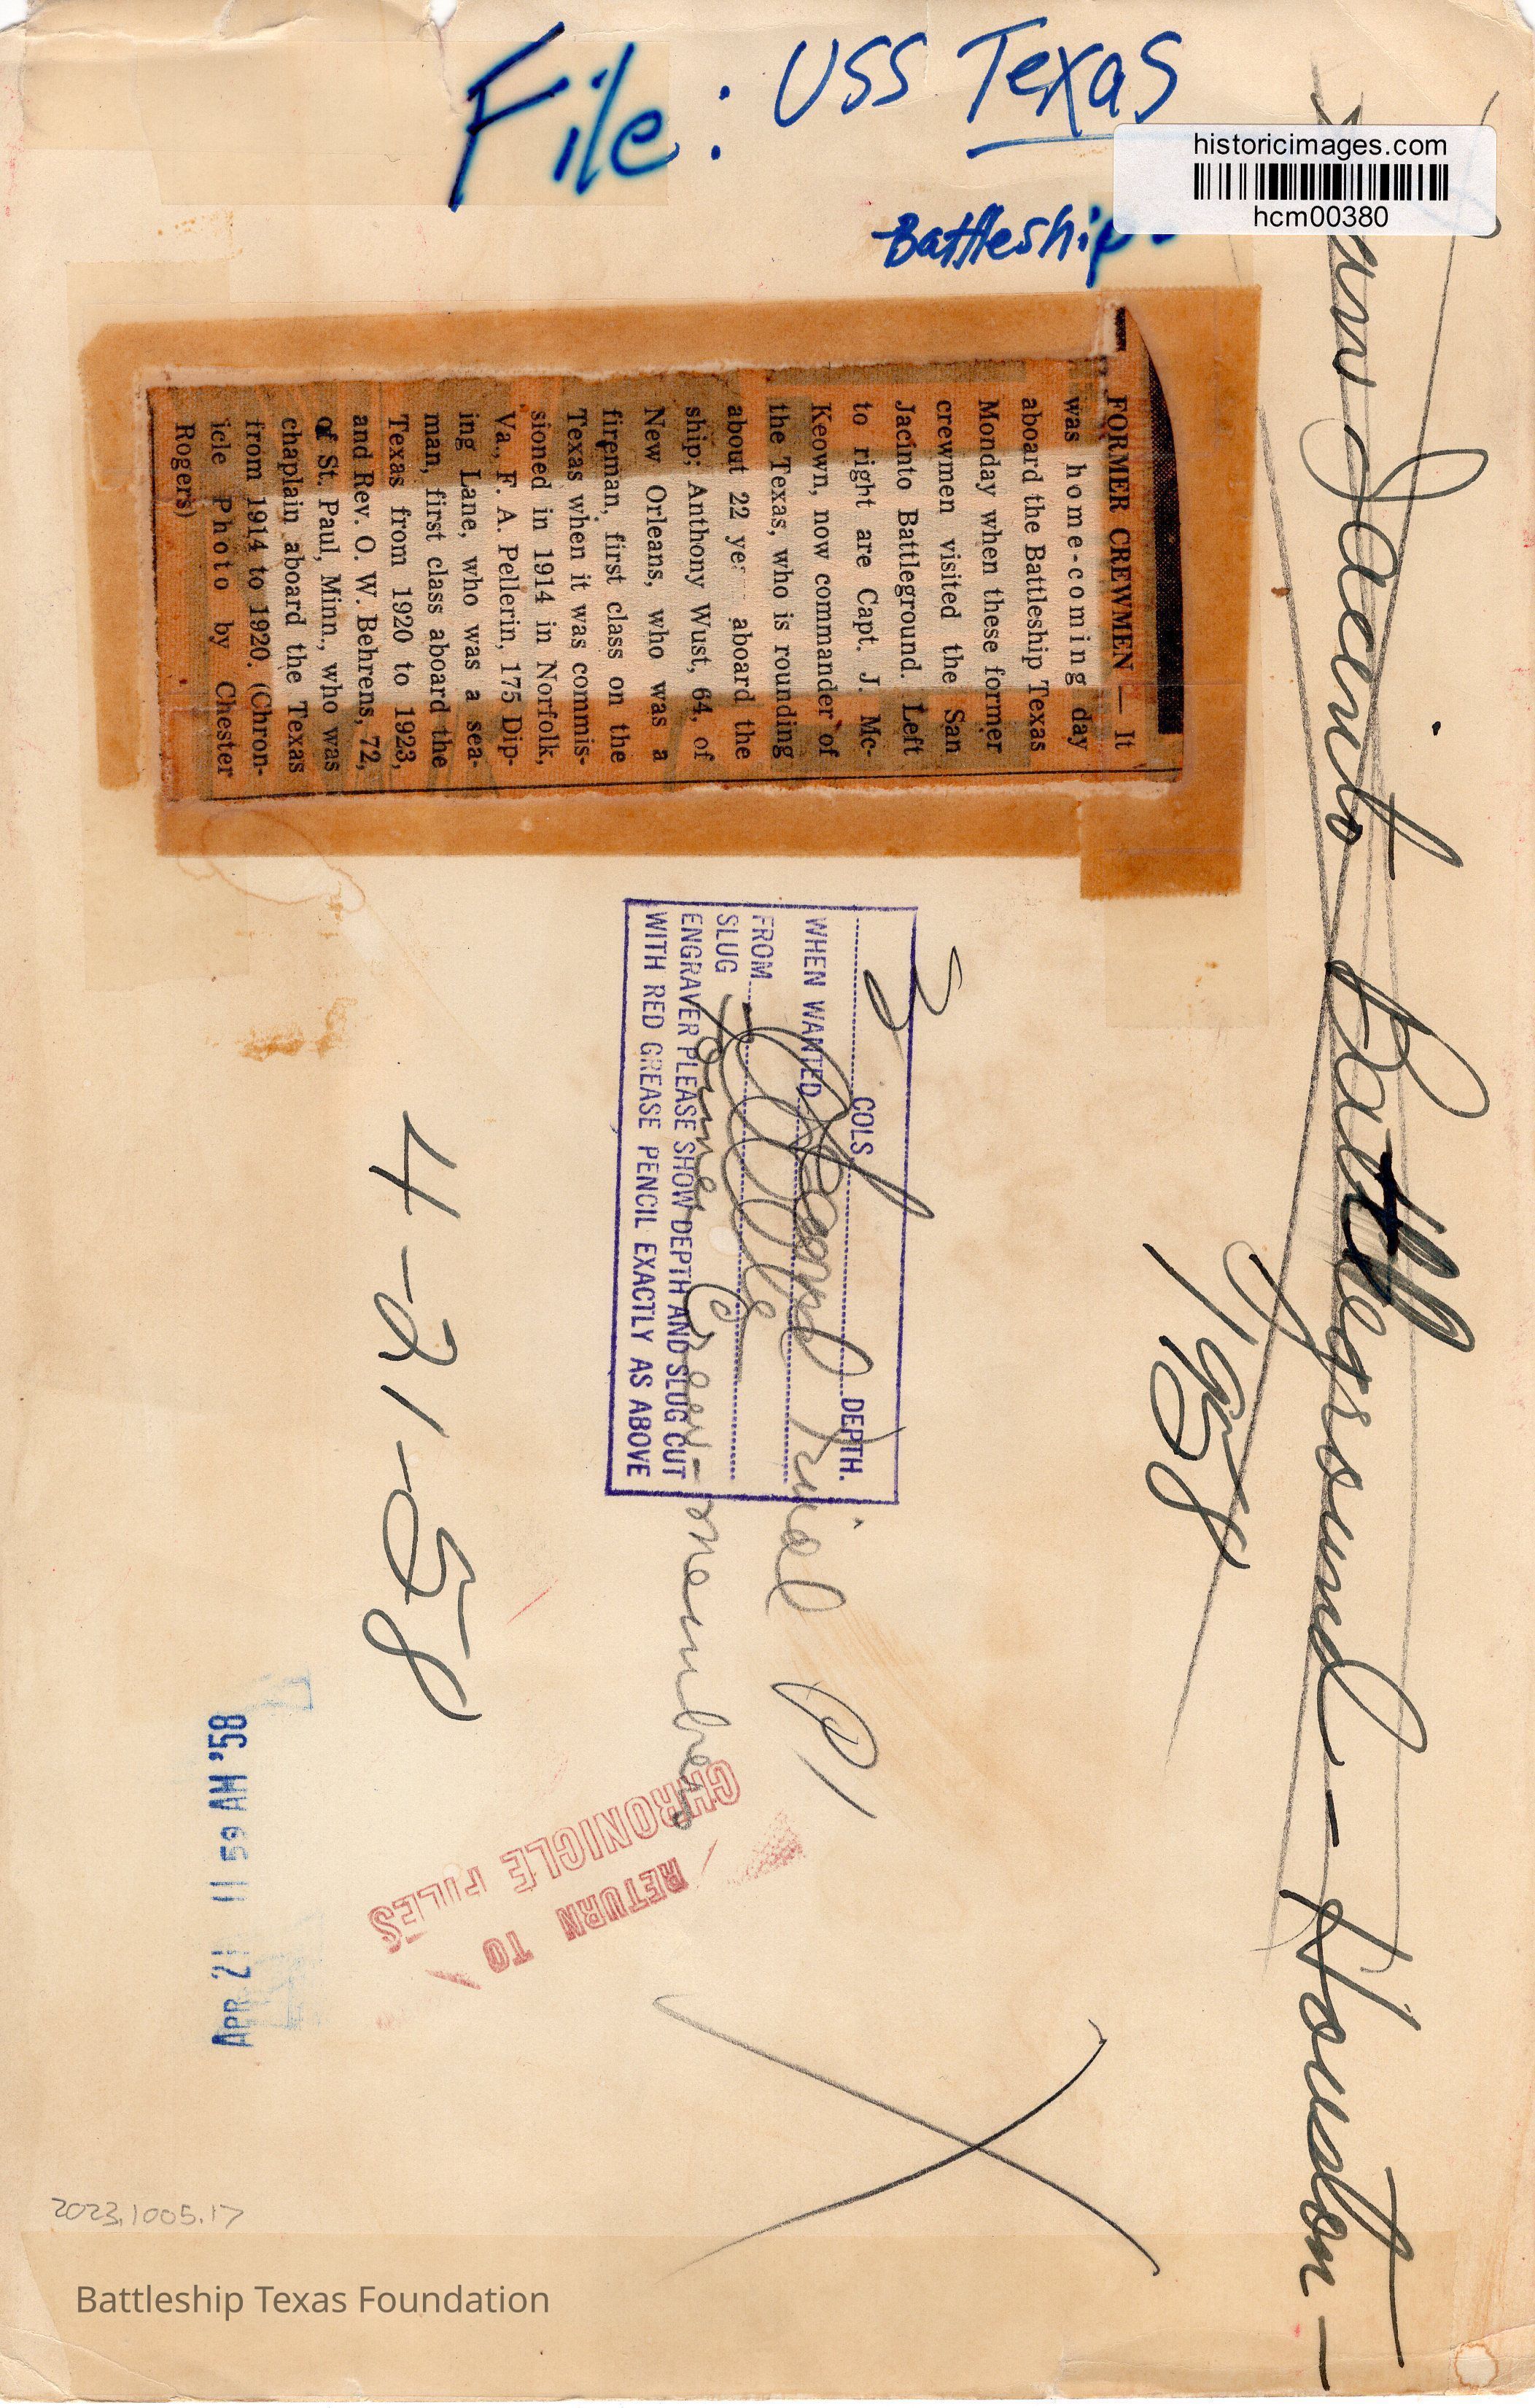 File: USS Texas
Battleship
historicimages.com
hcm00380
San Jacinto Battleground - Houston -
1958
FORMER CREWMEN — It
was home-coming day
aboard the Battleship Texas
Monday when these former
crewmen visited the San
Jacinto Battleground. Left
to right are Capt. J. Mc-
Keown, now commander of
the Texas, who is rounding
about 22 ye aboard the
ship; Anthony Wust, 64, of
New Orleans, who was a
fireman, first class on the
Texas when it was commis-
sioned in 1914 in Norfolk,
Va., F. A. Pellerin, 175 Dip-
ing Lane, who was a sea-
man, first class aboard the
Texas from 1920 to 1923,
and Rev. O. W. Behrens, 72,
of St. Paul, Minn., who was
chaplain aboard the Texas
from 1914 to 1920. (Chron-
icle Photo by Chester
Rogers)
3 COLS DEPTH.
WHEN WANTED
FROM
SLUG
ENGRAVER PLEASE SHOW DEPTH AND SLUG CUT
WITH RED GREASE PENCIL EXACTLY AS ABOVE
4-21-58
RETURN TO
CHRONICLE FILES
APR 21 11 59 AM '58
2023.1005.17
Battleship Texas Foundation